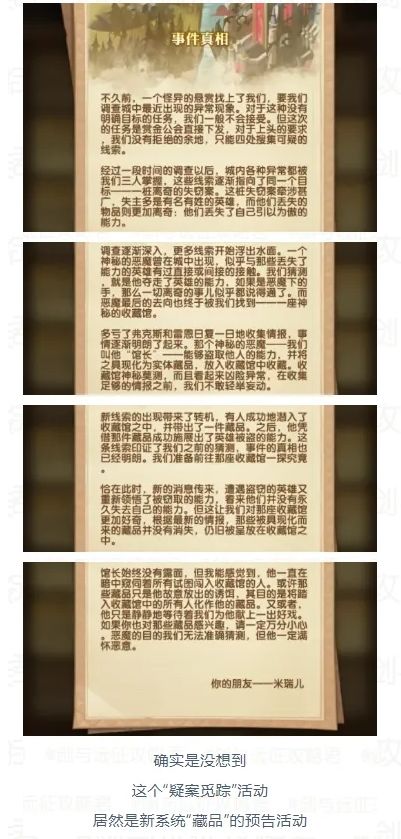 事件真相
不久前，一个怪异的悬赏找上了我们，要我们
调查城中最近出现的异常现象。对于这种没有
明确目标的任务，我们一般不会接受。但这次
的任务是赏金公会直接下发，对于上头的要求
，我们没有拒绝的余地，只能四处搜集可疑的
线索。
经过一段时间的调查以后，城内各种异常都被
我们三人掌握，这些线索逐渐指向了同一个目
标———桩离奇的失窃案。这桩失窃案牵涉甚
广，失主多是有名有姓的英雄，而他们丢失的
物品则更加离奇：他们丢失了自己引以为傲的
能力。
调查逐渐深入，更多线索开始浮出水面。一个
神秘的恶魔曾在城中出现，似乎与那些丢失了
能力的英雄有过直接或间接的接触。我们猜测
，就是他夺走了英雄的能力，如果是恶魔下的
手，那么一切离奇的事儿似乎都说得通了。而
恶魔最后的去向也终于被我们找到——一座神
秘的收藏馆。
多亏了弗克斯和雷恩日复一日地收集情报，事
情逐渐明朗了起来。那个神秘的恶魔——我们
叫他“馆长”——能够盗取他人的能力，并将
之具现化为实体藏品，放入收藏馆中收藏。收
藏馆神秘莫测，而且看起来凶险异常，在收集
足够的情报之前，我们不敢轻举妄动。
新线索的出现带来了转机，有人成功地潜入了
收藏馆之中，并带出了一件藏品。之后，他凭
借那件藏品成功施展出了英雄被盗的能力。这
条线索印证了我们之前的猜测，事件的真相也
已经明朗。我们准备前往那座收藏馆一探究竟
。
恰在此时，新的消息传来，遭遇盗窃的英雄又
重新领悟了被窃取的能力，看来他们并没有永
久失去自己的能力。但这让我们对那座收藏馆
更加好奇，根据最新的情报，那些被具现化而
来的藏品并没有消失，仍旧被呈放在收藏馆之
中。
馆长始终没有露面，但我能感觉到，他一直在
暗中窥伺着所有试图闯入收藏馆的人。或许那
些藏品只是他故意放出的诱饵，其目的是将踏
入收藏馆中的所有人化作他的藏品。又或者，
他只是静静地等待着我们为他献上一出好戏。
如果你也对那些藏品感兴趣，请一定万分小心
。恶魔的目的我们无法准确猜测，但他一定满
怀恶意。
你的朋友——米瑞儿
确实是没想到
这个“疑案觅踪”活动
居然是新系统“藏品”的预告活动